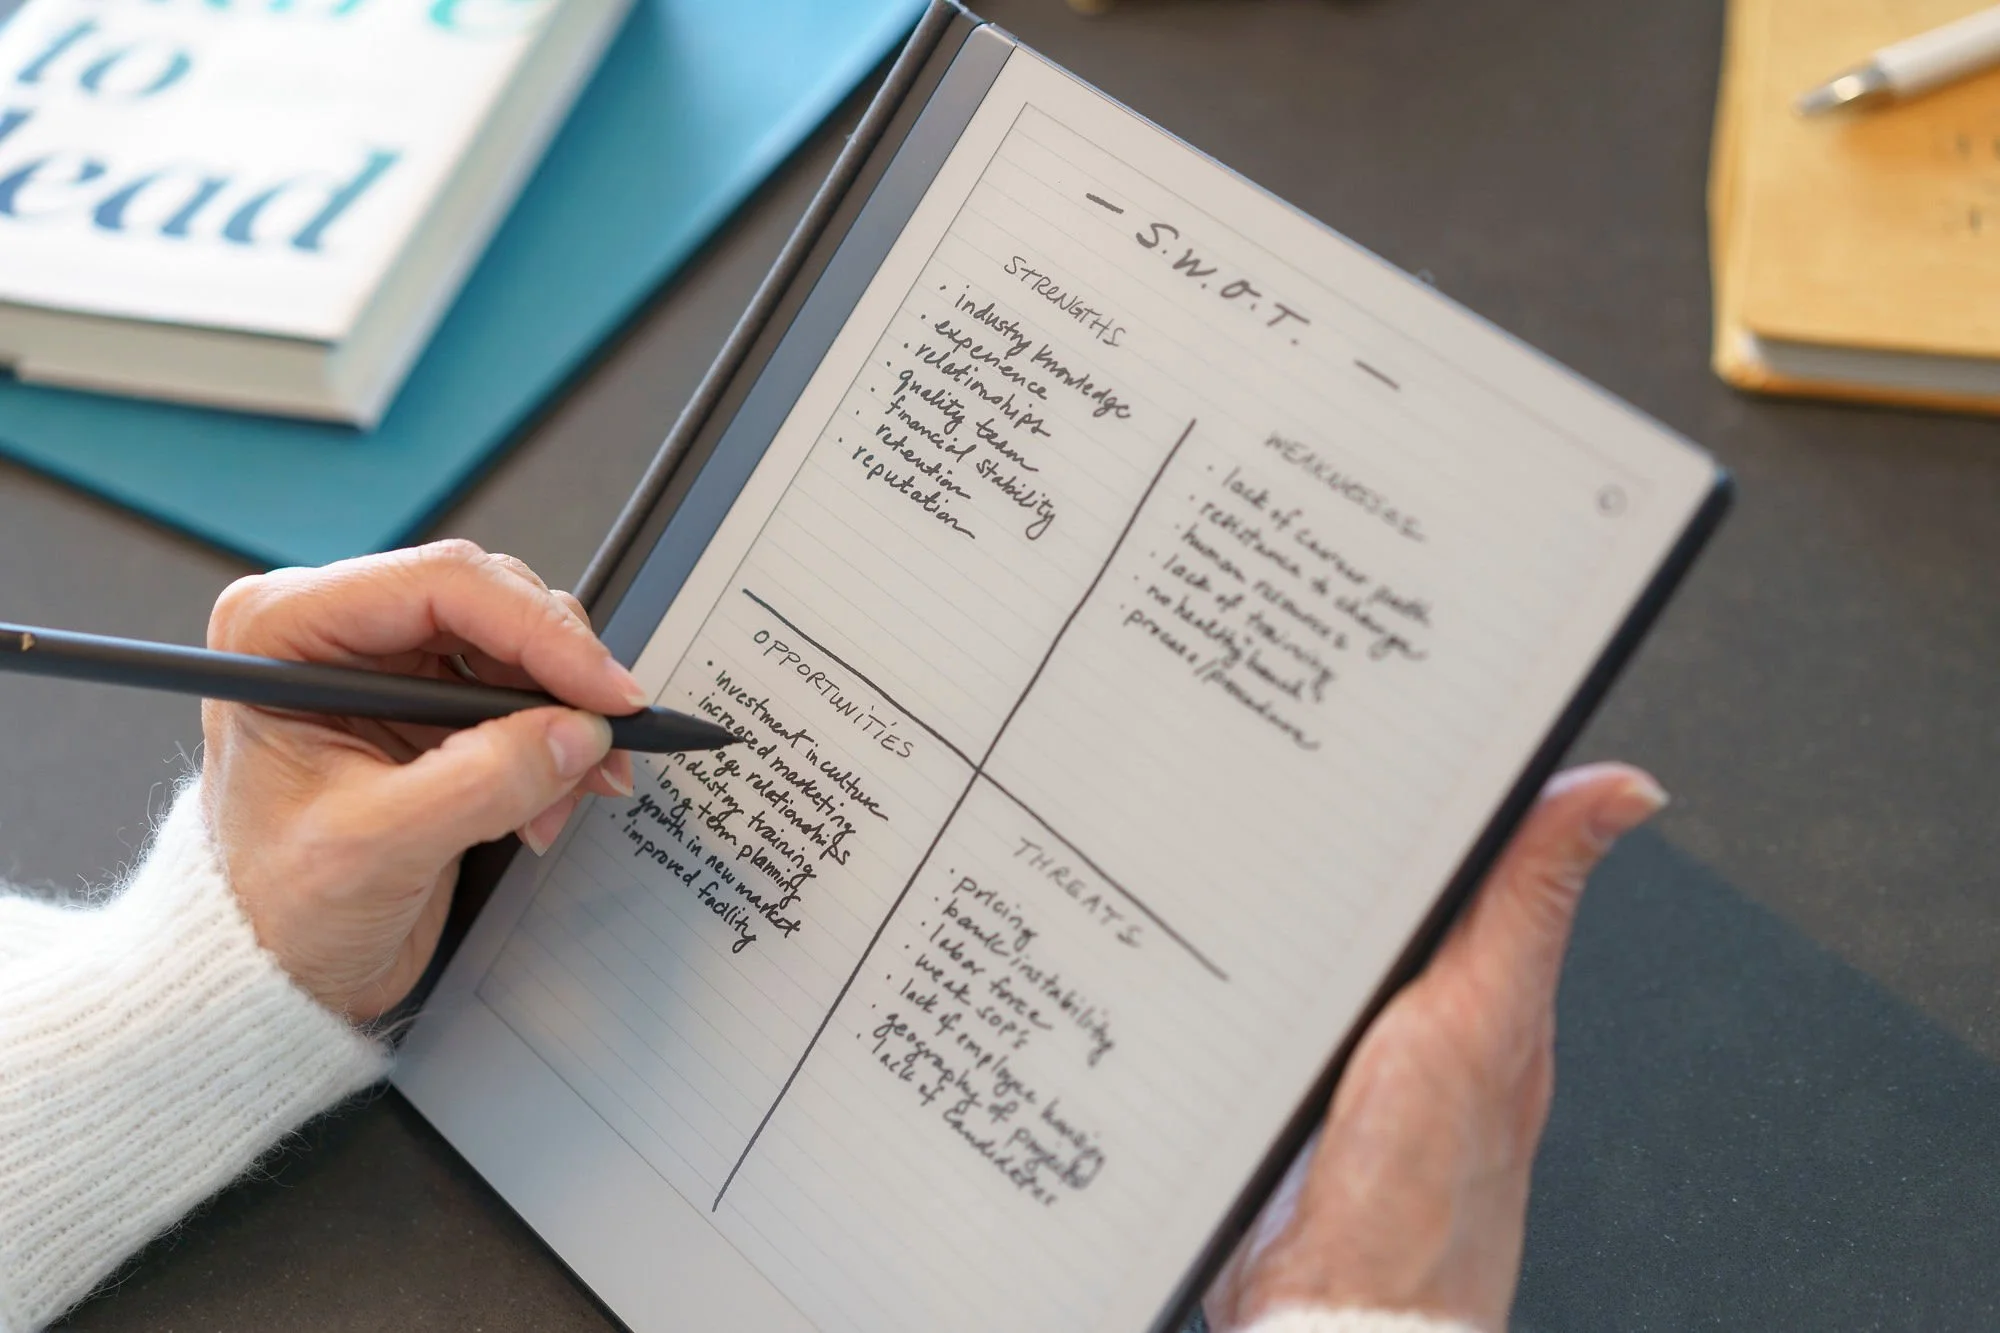 to
lead
— S.W.O.T. —
STRENGTHS
• industry knowledge
• experience
• relationships
• quality team
• financial stability
• retention
• reputation
WEAKNESSES
• lack of career path
• resistance to change
• human resources
• lack of training
• no healthy
• process/
OPPORTUNITIES
• investment in culture
• increased marketing
age relationships
industry training
• long term planning
growth in new market
• improved facility
THREATS
• pricing
• bank instability
• labor force
• weak SOPs
• lack of employee housing
• geography of
• lack of candidates